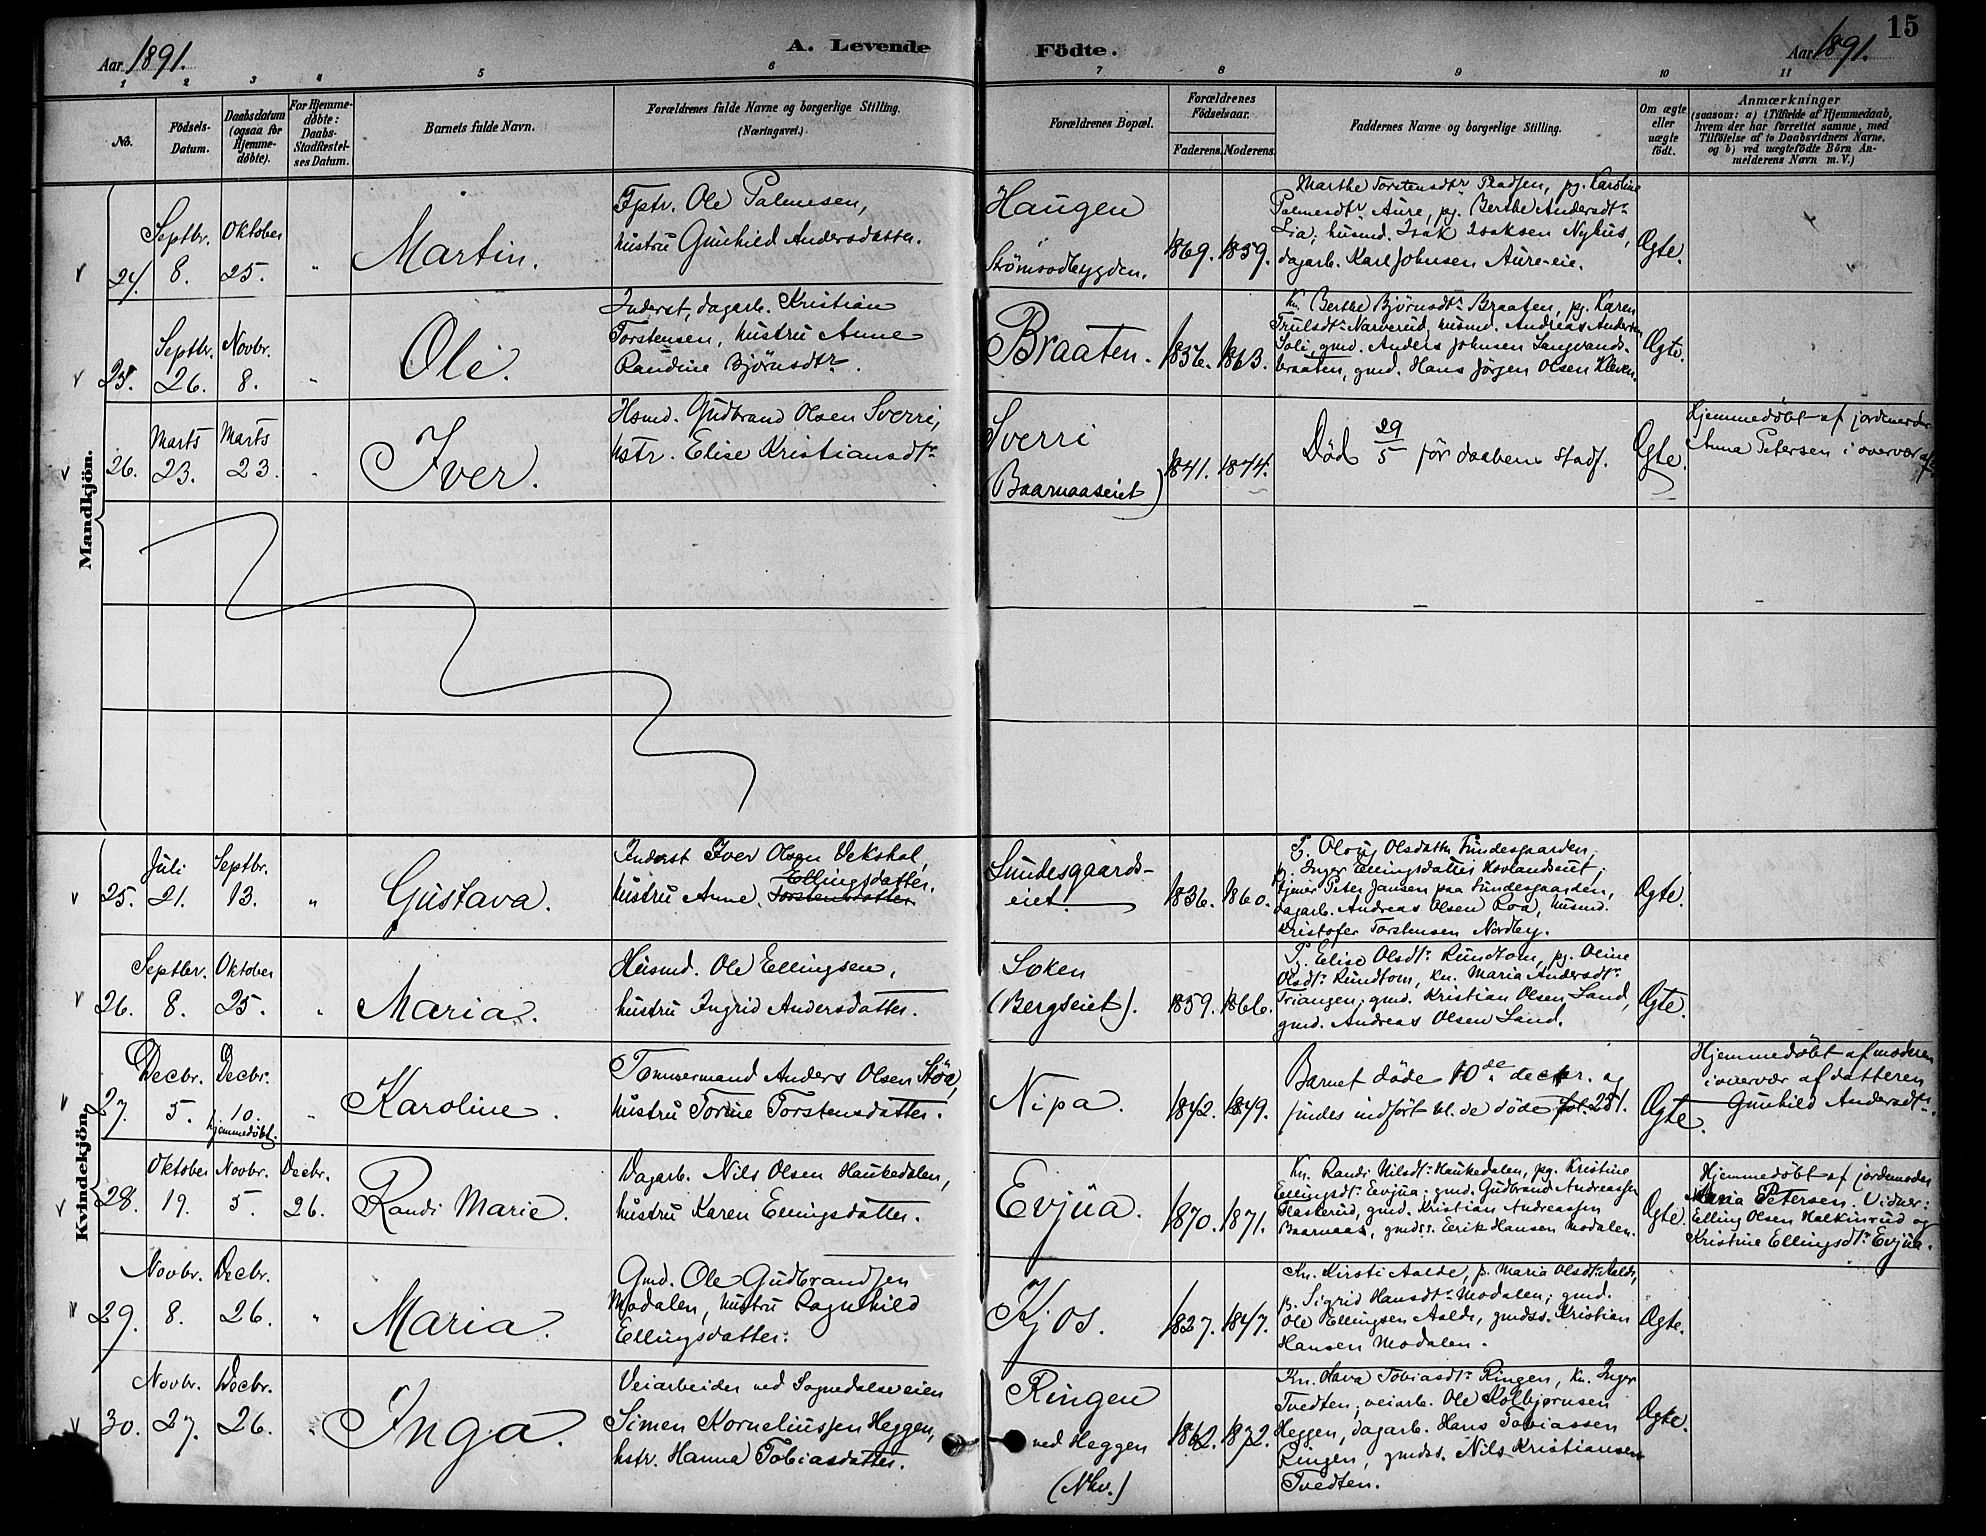 15
Aar 1891.
A. Levende Födte.
Aar 1891.
1 2 3 4 5 6 7 8 9 10 11
No.
Födsels-
Datum.
Daabsdatum
(ogsaa for
Hjemme-
døbte).
For Hjemme-
døbte:
Daabs-
Stadfæstel-
ses Datum.
Barnets fulde Navn.
Forældrenes fulde Navne og borgerlige Stilling.
(Næringsvei.)
Forældrenes Bopæl.
Forældrenes
Födselsaar.
Faderens. Moderens.
Faddernes Navne og borgerlige Stilling.
Om ægte
eller
uægte
födt.
Anmærkninger
(saasom: a) i Tilfælde af Hjemmedaab,
hvem der har forrettet samme, med
Tilföielse af to Daabsvidners Navne,
og b) ved uægtefödte Börn An-
melderens Navn m. V.)
Mandkjön.
24.
Septbr.
8.
Oktober
25.
"
Martin.
Fptr. Ole Palmesen,
hustru Gunhild Andersdatter.
Haugen
Stömsodbygden.
1869. 1859.
Marthe Torstensdtr Pladsen, pg. Karoline
Palmesdtr Aure, pg. Berthe Andersdtr
Lia; husmd. Isak Isaksen Nyhus,
dagarb. Karl Johnsen Aure-eie.
Ægte.
25.
Septbr.
26.
Novbr.
8.
"
Ole.
Inderst, dagarb. Kristian
Torstensen, hustru Anne
Randine Björnsdtr.
Braaten.
1856. 1863.
Kn. Berthe Björnsdtr Braaten, pg. Karen
Trulsdtr Narverud, husmd. Andreas Andersen
Soli, gmd. Anders Johnsen Langvands-
braaten, gmd. Hans Jörgen Olsen Kleven.
Ægte.
26.
Marts
23.
Marts
23.
"
Iver.
Hsmd. Gudbrand Olsen Sverri,
hstr. Elise Kristiansdtr
Sverri
(Baarnaaseiet)
1841. 1874.
Död 29/5 för daabens stadf.
Ægte.
Hjemmedøbt af jordemoder
Anna Petersen i overvær af
Kvindekjön.
25.
Juli
21.
Septbr.
13.
"
Gustava.
Inderst Iver Olsen Vekshal,
Ellingsdatter.
hustru Anne Torstensdatter
Sundesgaards-
eiet.
1836. 1860.
P. Oloug Olsdatter Sundesgaarden,
pg. Inger Ellingsdatter Hovlandseiet,
tjener Peter Jansen paa Sundesgaarden,
dagarb. Andreas Olsen Roa, husmd.
Kristofer Torstensen Nordby.
Ægte.
26.
Septbr.
8.
Oktober
25.
"
Maria.
Husmd. Ole Ellingsen,
hustru Ingrid Andersdatter.
Loken
(Bergseiet).
1859. 1866.
Pg. Elise Olsdtr Rundtom, pg. Oline
Olsdtr Rundtom, kn. Maria Andersdtr
Triangen; gmd. Kristian Olsen Sand,
gmd. Andreas Olsen Sand.
Ægte.
27.
Decbr.
5.
Decbr.
10.
hjemmedøbt.
"
Karoline.
Tömmermand Anders Olsen Stöa,
hustru Torine Torstensdatter.
Nipa.
1842. 1849.
Barnet döde 10de decbr. og
findes indfört bl. de döde fol. 251.
Ægte.
Hjemmedøbt af moderen
i overvær af datteren
Gunhild Andersdtr.
28.
Oktober
19.
Novbr.
5.
Decbr.
26.
Randi Marie.
Dagarb. Nils Olsen Haukedalen,
hustru Karen Ellingsdatter.
Evjua.
1870. 1871.
Kn. Randi Nilsdtr Haukedalen, pg. Kristine
Ellingsdtr Evjua; gmd. Gudbrand Andreassen
Flaskerud, gmd. Kristian Andreassen
Baarnaas, gmdss. Eerik Hansen Modalen.
Ægte.
Hjemmedøbt af jordemoder
Petersen. Vidner:
Elling Olsen Halkinrud og
Kristine Ellingsdtr Evjua.
29.
Novbr.
8.
Decbr.
26.
"
Maria.
Gmd. Ole Gudbrandsen
Modalen, hustru Ragnhild
Ellingsdatter.
Kjos.
1827. 1847.
Kn. Kirsti Aalde, p. Maria Olsdtr Aalde,
p. Sigrid Hansdtr Modalen; gmd.
Ole Ellingsen Aalde, gmdss. Kristian
Hansen Modalen.
Ægte.
30.
Novbr.
27.
Decbr.
26.
"
Inga.
Veiarbeider ved Sognedalsveien
Simen Korneliussen Heggen,
hstr. Hanna Tobiasdatter.
Ringen
ved Heggen
(Nkv.)
1862. 1872.
Kn. Hava Tobiasdtr Ringen, kn. Inger
Tvedten; veiarb. Ole Kolbjörnsen
Heggen, dagarb. Hans Tobiassen
Ringen, gmdss. Nils Kristiansen
Tvedten.
Ægte.